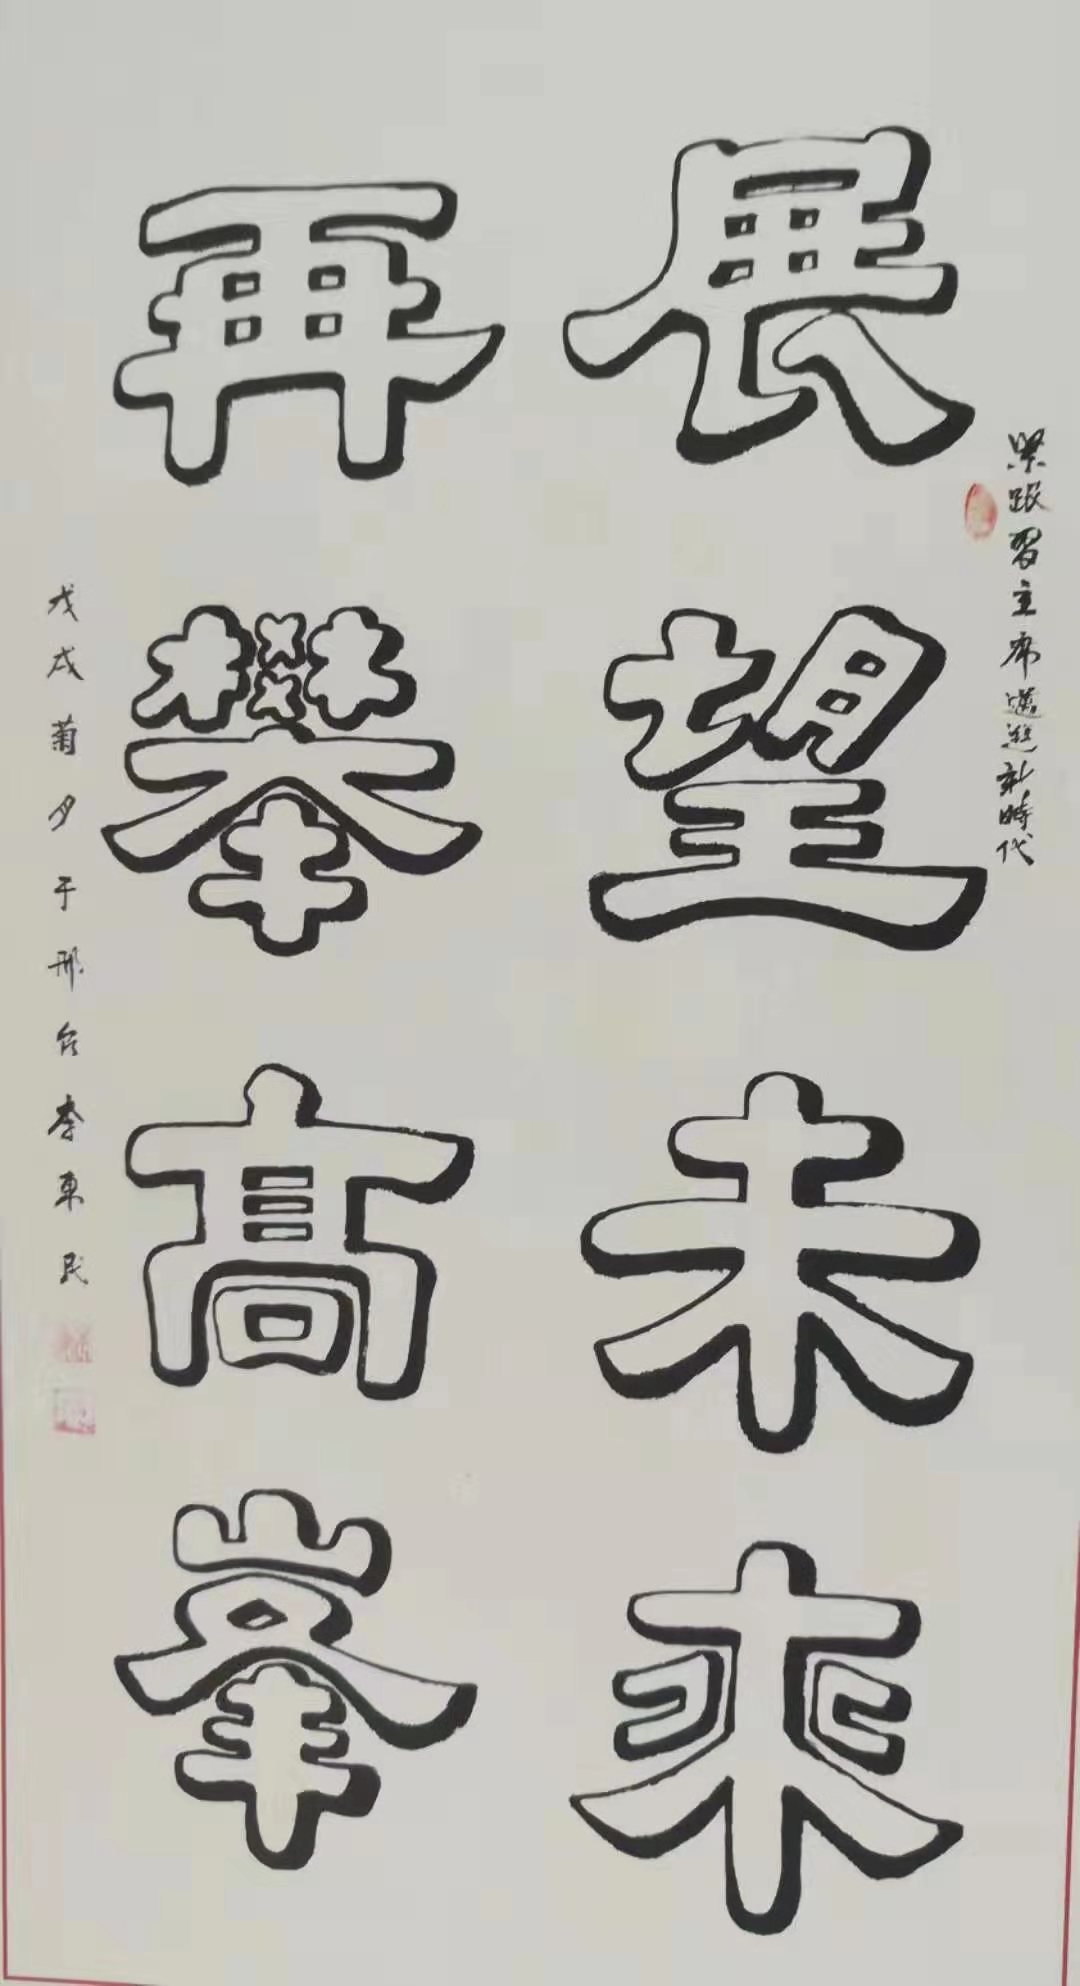 紧跟習主席邁進新時代
展望未來
再攀高峯
戊戌菊月于邢台李東民